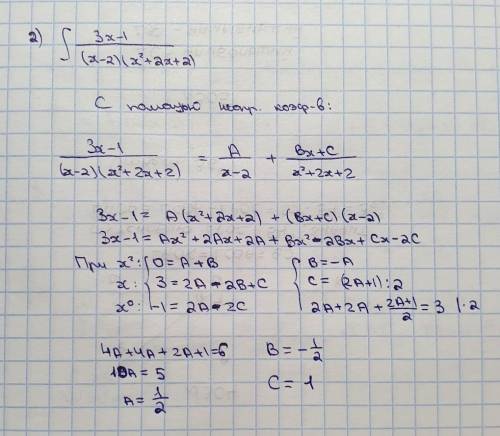 2) ∫ 3x-1 / (x-2)(x²+2x+2)
С помощью неопр. коэф-в:
3x-1 / (x-2)(x²+2x+2) = A / x-2 + Bx+C / x²+2x+2
3x-1 = A(x²+2x+2) + (Bx+C)(x-2)
3x-1 = Ax²+2Ax+2A+Bx²-2Bx+Cx-2C
При x²: { 0=A+B { B=-A
x: 3=2A-2B+C C=(2A+1):2
x⁰: -1=2A-2C 2A+2A+ 2A+1 / 2 =3 |·2
4A+4A+2A+1=6 B=-1/2
10A=5 C=1
A=1/2